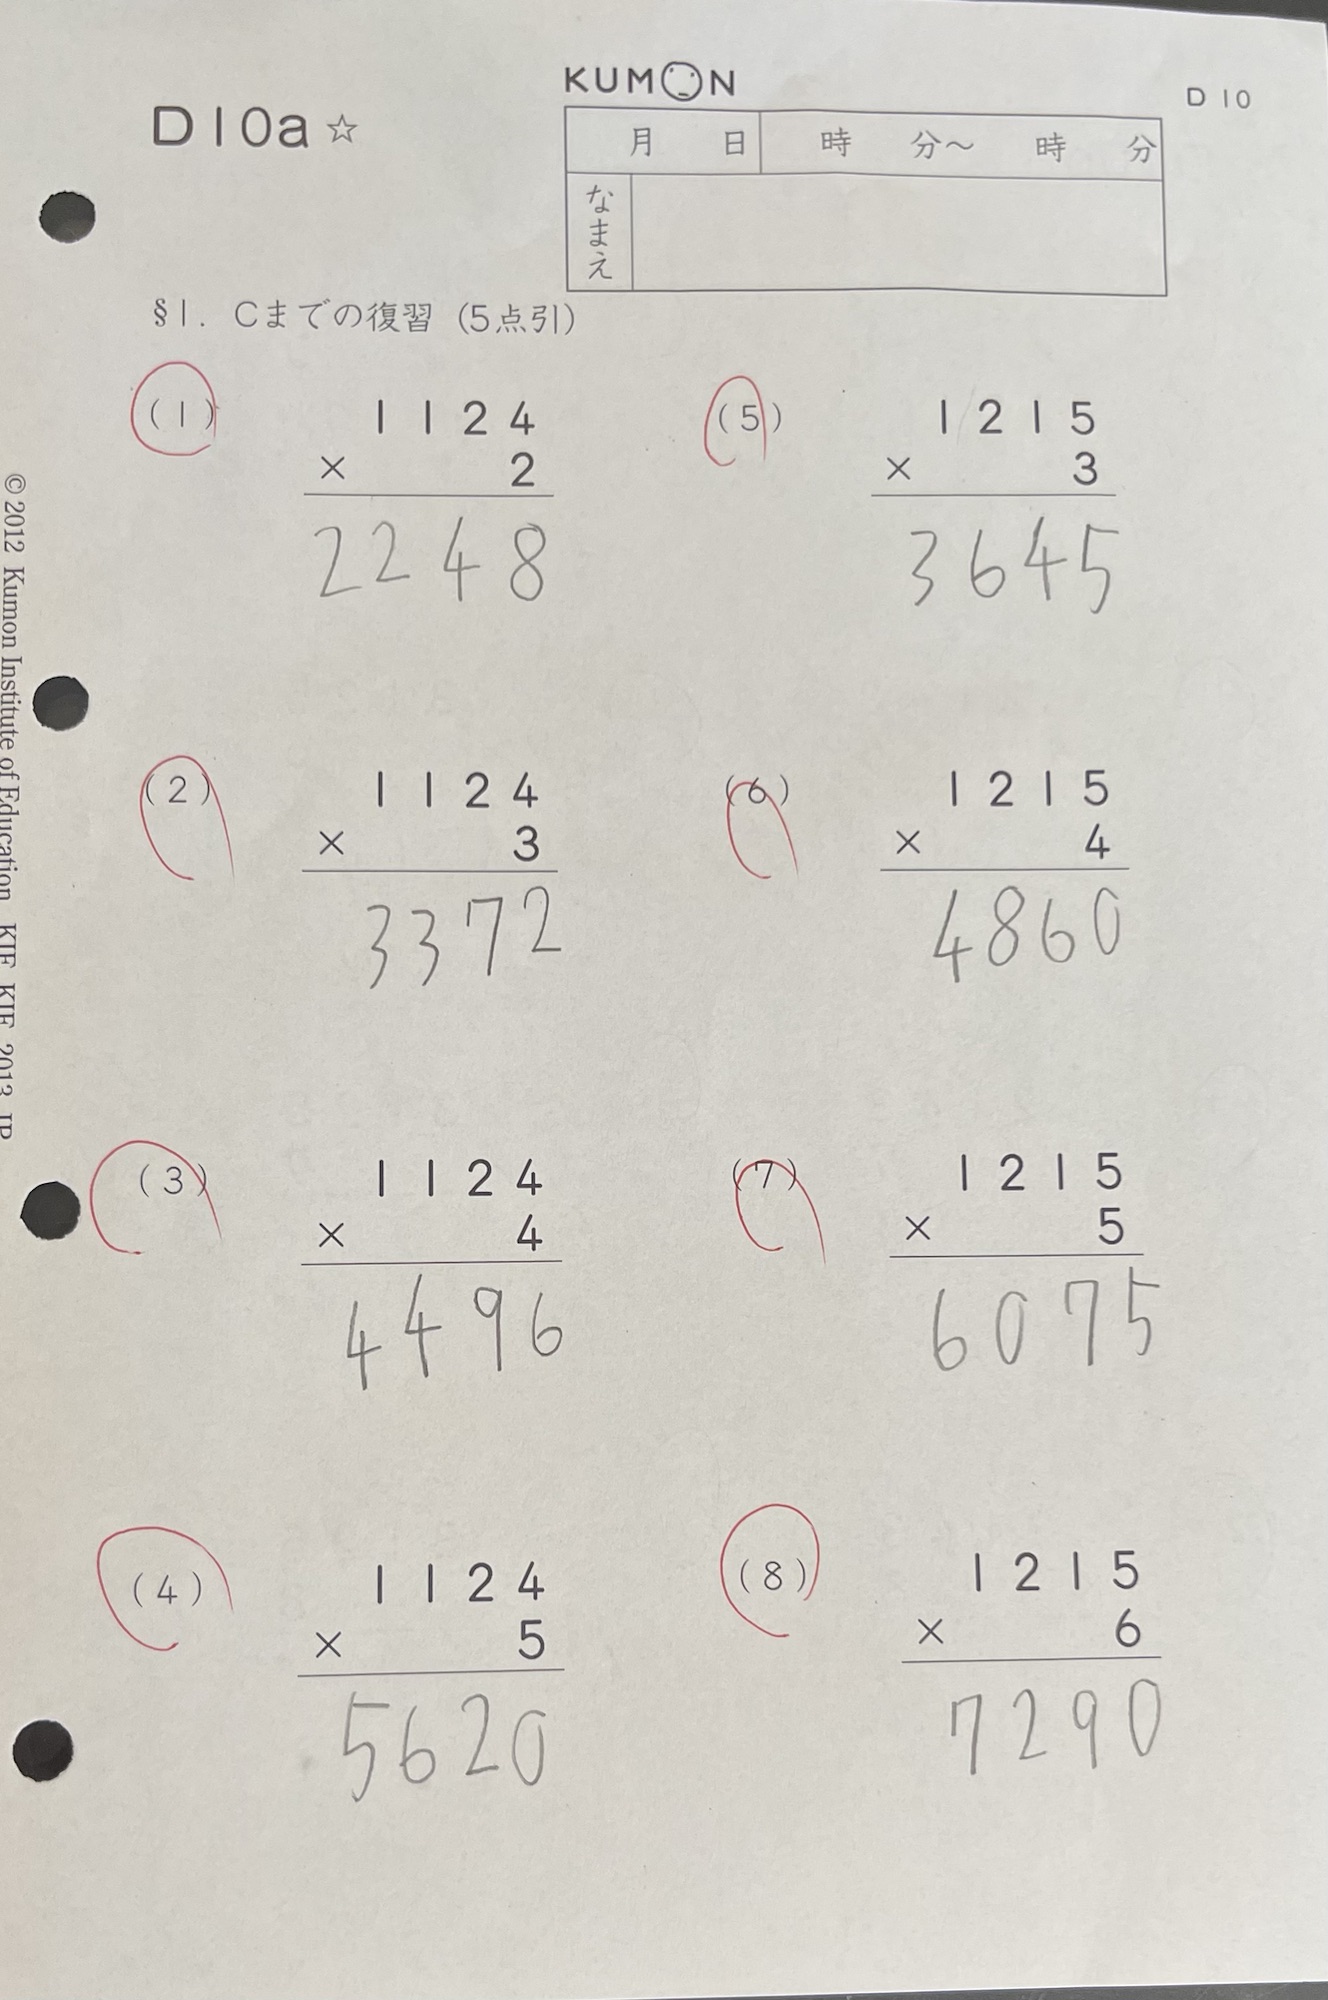 KUMON
D10a☆
D 10
月 日 時 分〜 時 分
なまえ
§1. Cまでの復習 (5点引)
(1) 1124
× 2
2248
(2) 1124
× 3
3372
(3) 1124
× 4
4496
(4) 1124
× 5
5620
(5) 1215
× 3
3645
(6) 1215
× 4
4860
(7) 1215
× 5
6075
(8) 1215
× 6
7290
© 2012 Kumon Institute of Education KIE KIE 2013 JP